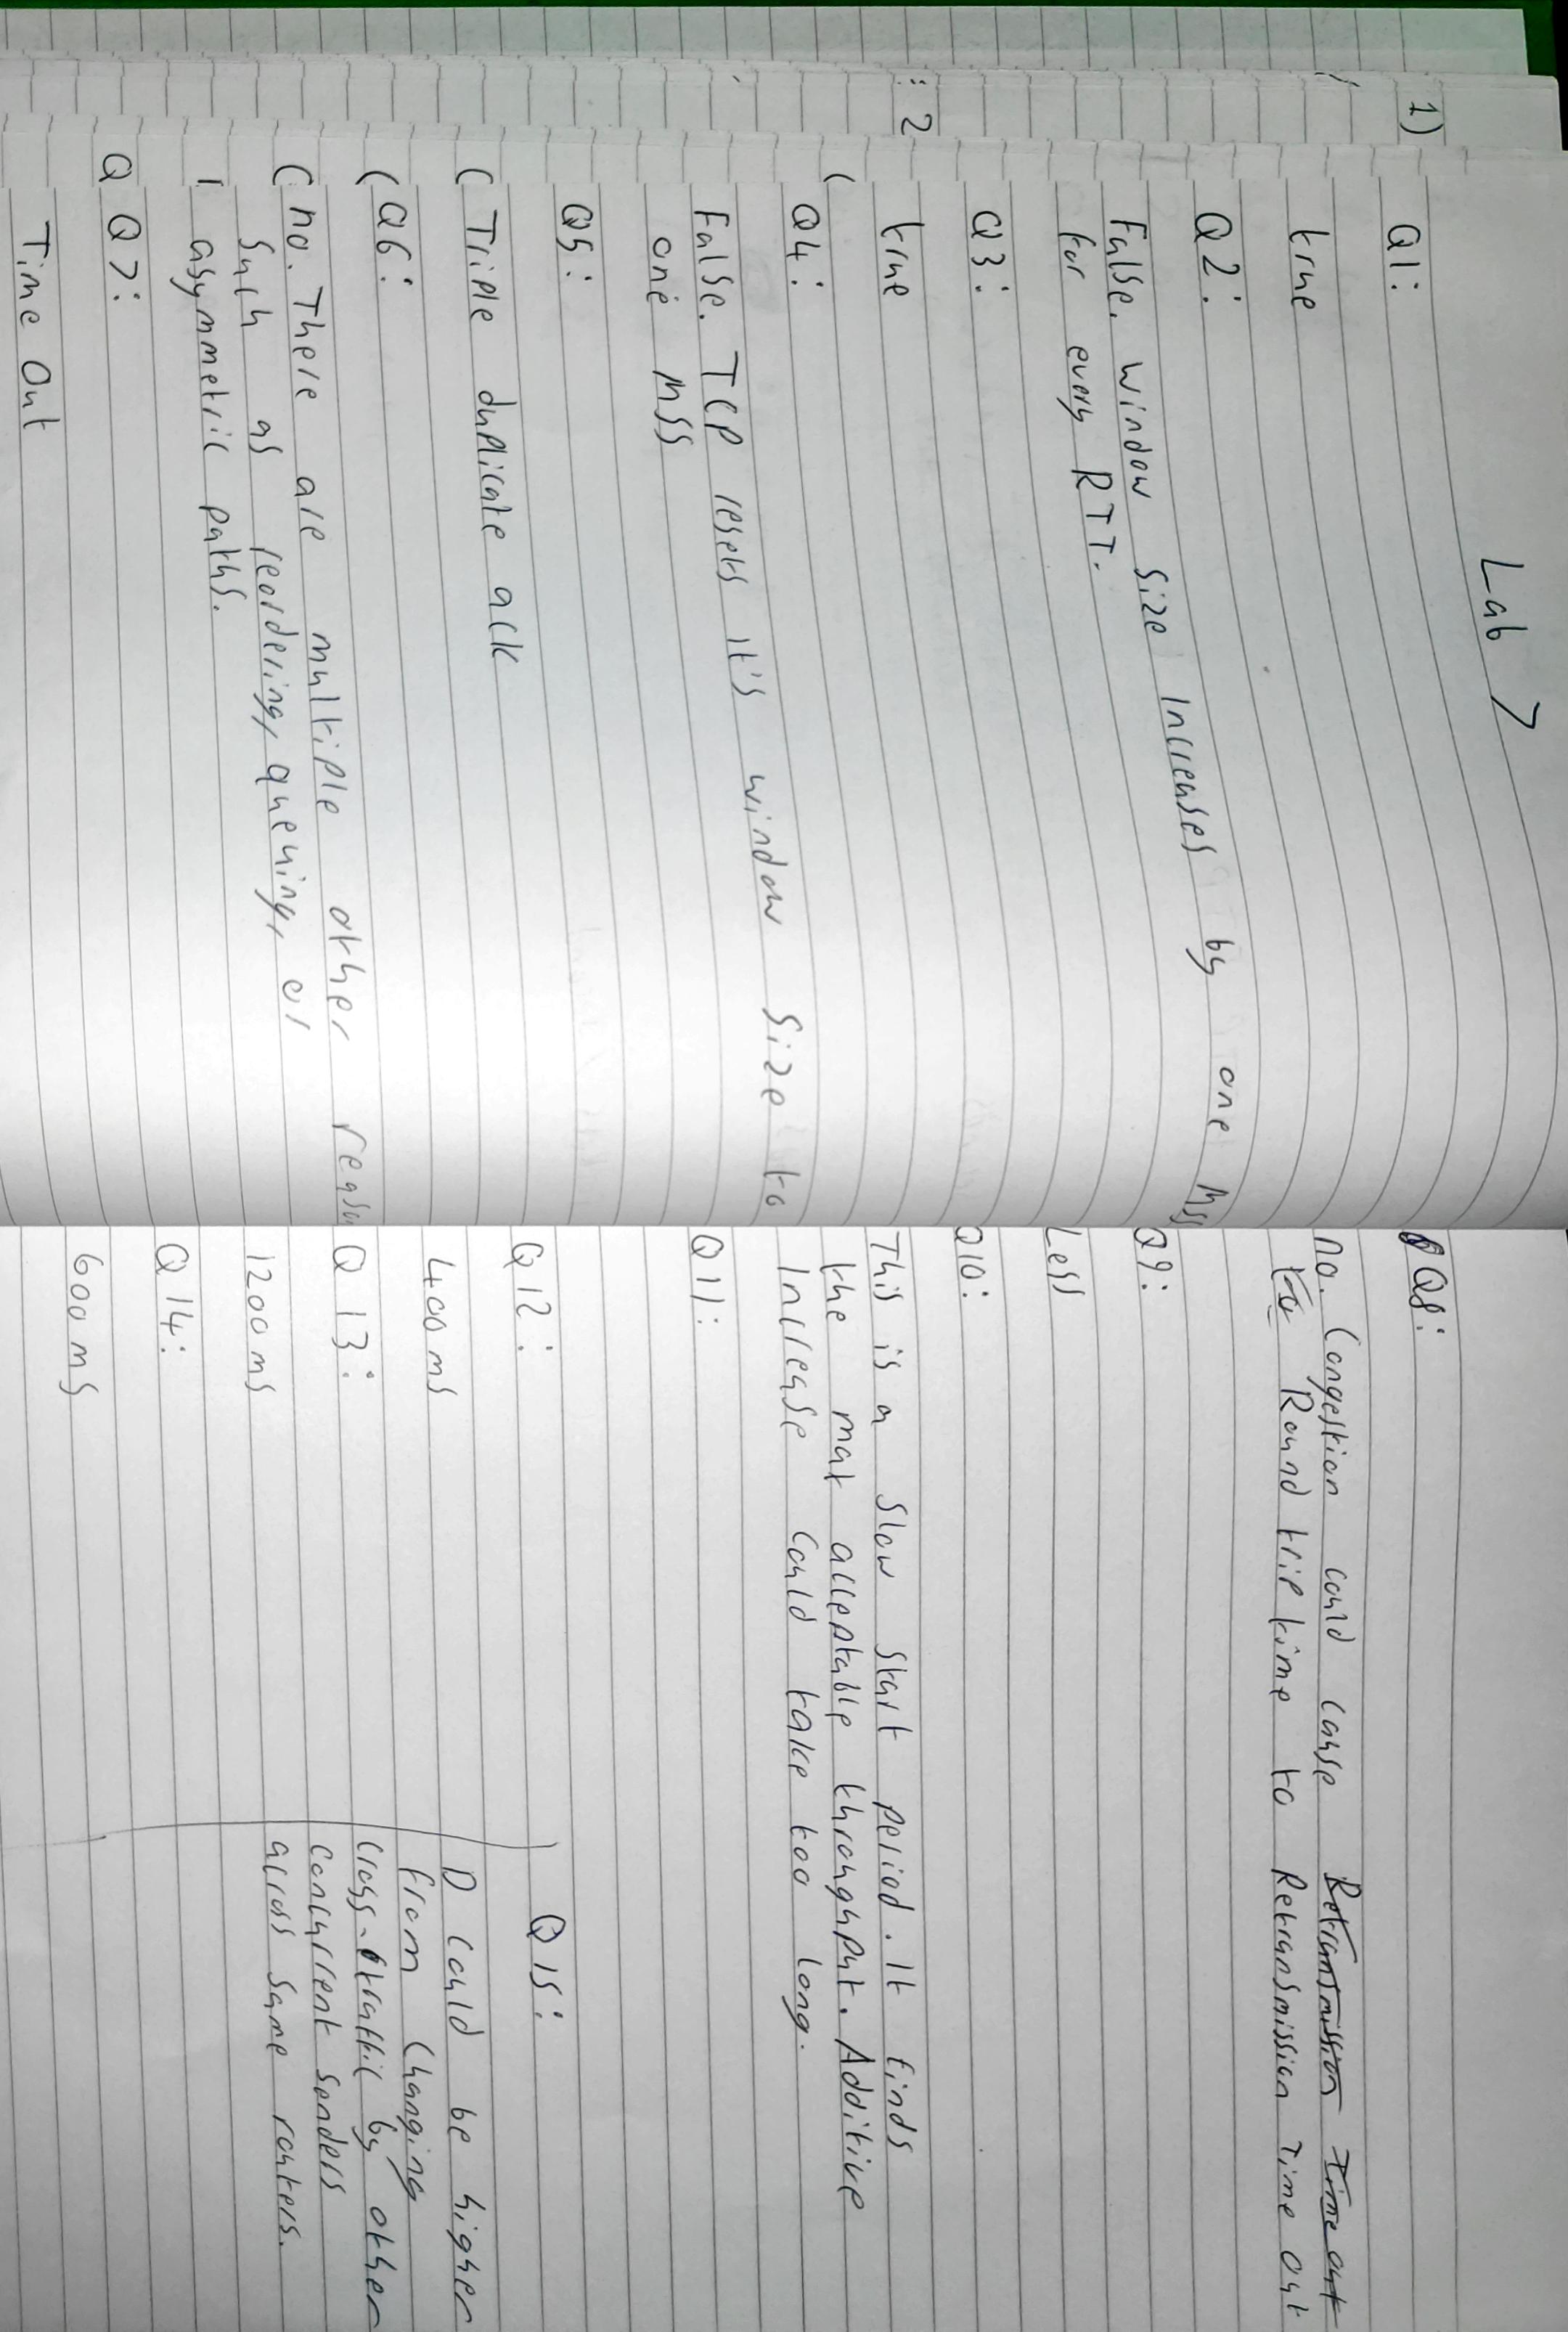 Lab 7
1)
Q1:
true
Q2:
False. Window size increases by one Mss
for every RTT.
Q3:
true
2
Q4:
False. TCP resets it's window size to
one mss
Q5:
Triple duplicate ack
Q6:
no. There are multiple other reaso
such as reordering, queuing, or
asymmetric paths.
Q7:
Time Out
Q8:
no. Congestion could cause Retransmission Time out
to Round trip time to Retransmission Time out
Q9:
Less
Q10:
This is a slow start period. It finds
the max acceptable throughput. Additive
Increase could take too long.
Q11:
Q12:
400ms
Q13:
1200ms
Q14:
600ms
Q15:
D could be higher
from changing
cross-traffic by other
concurrent senders
across same routers.